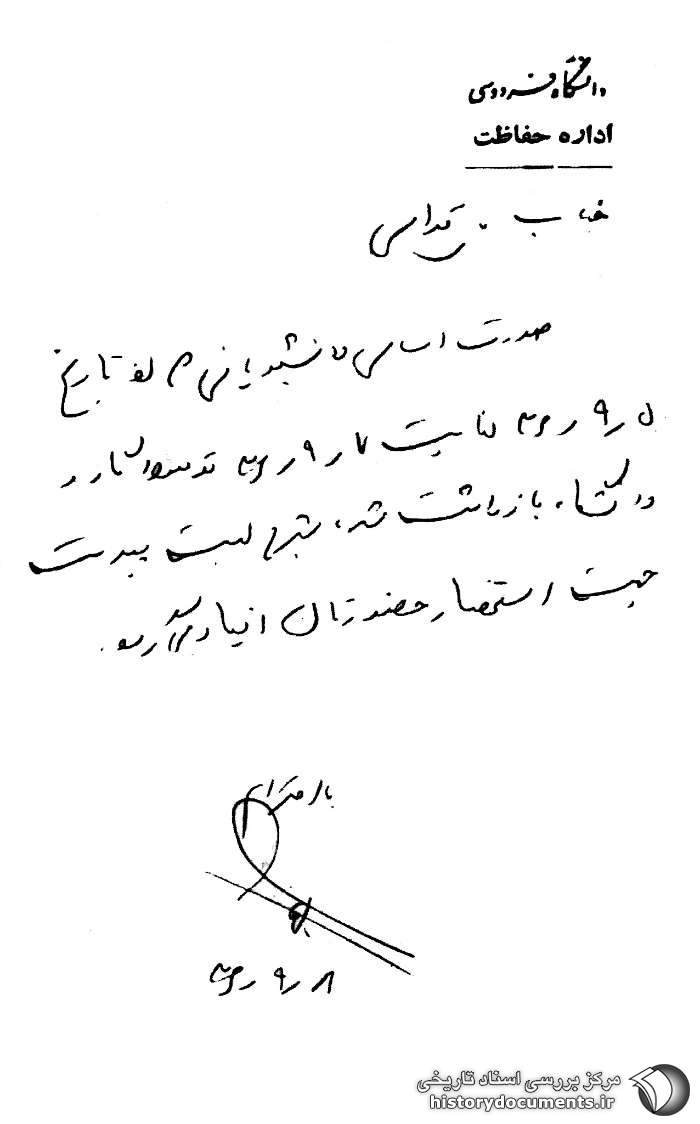 دانشگاه فردوسی
اداره حفاظت
جناب
صورت اسامی دانشجویانی که از تاریخ
لغایت ۷ر۹ر توسط گارد
دانشگاه بازداشت شده، بشرح لیست پیوست
جهت استحضار حضورتان ارسال میگردد.
با احترام
۸ر۹ر
مرکز بررسی اسناد تاریخی
historydocuments.ir